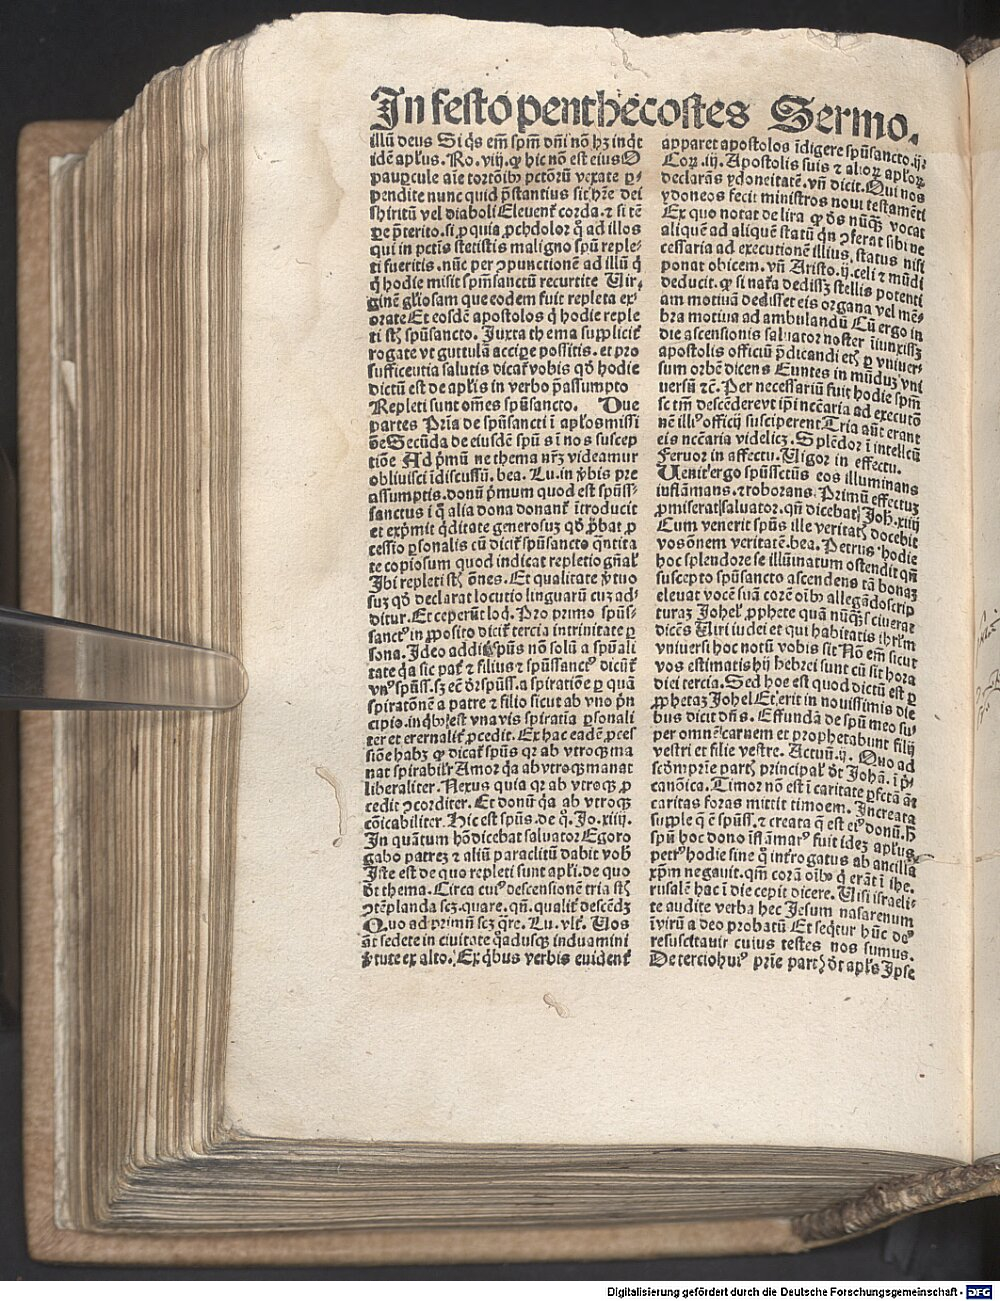 In festo penthecostes Sermo.
illū deus Si q̄s em̄ spm̄ dn̄i nō hȝ inq̄t
idē apl'us. Ro. viij. ꝙ hic nō est eius O
paupcule aīe tortōibꝰ pctōrū vexate ꝑ-
pendite nunc quid p̄stantius sit hr̄e dei
spiritū vel diaboli Eleuent̄ corda. ⁊ si tē
ꝑe p̄terito. si. ꝓ quia ꝓchdolor q̊ ad illos
qui in pctis stetistis maligno spū reple-
ti fueritis. nūc per ꝯpunctionē ad illū q̇
q̇ hodie misit spm̄sanctū recurrite Uir-
ginē gl'iosam que eodem fuit repleta ex-
orate Et eosdē apostolos q̇ hodie reple
ti st̄ spūsancto. Juxta thema supplicit̄
rogate vt guttulā accipe possitis. et pro
sufficeutia salutis dicat̄ vobis qd̓ hodie
dictū est de apl'is in verbo p̄assumpto
Repleti sunt om̄es spūsancto. Due
partes Pr̄ia de spūsancti ī apl'os missi
ōe Secūda de eiusdē spū s ī nos suscep
tiōe Ad p̄mū ne thema nr̄ȝ videamur
obliuisci īdiscussū. bea. Lu. in v̓bis pre
assumptis. donū p̄mum quod est spūss-
sanctus ī q̇ alia dona donant̄ ītroducit
et exp̄mit q̇ditate generosuȝ qd̓ ꝓbat ꝓ
cessio ꝑsonalis cū dicit̄ spūsancto q̄ntita
te copiosum quod indicat repletio gn̄al'
Ibi repleti st̄ ōnes. Et qualitate v̓tuo
suȝ qd̓ declarat locutio linguarū cuȝ ad-
ditur. Et ceperūt loq̇. Pro primo spūs-
sanctꝰ in ꝓposito dicit̄ tercia intrinitate ꝑ
sona. Ideo addit̄ spūs nō solū a spūali
tate q̇a sic pat̄ ⁊ filius ⁊ spūssanctꝰ dicūt̄
vnꝰ spūss. sȝ eē dr̄ spūss. a spiratiōe ꝑ quā
spiratōnē a patre ⁊ filio sicut ab vno p̄n
cipio. in q̇bꝰ est vna vis spiratia ꝑsonali
ter et eternalit̄ ꝓcedit. Ex hac eadē ꝓces
siōe habȝ ꝙ dicat̄ spūs qr ab vtroqȝ ma
nat spirabilr̄ Amor q̇a ab vtroqȝ manat
liberaliter. Nexus quia qr ab vtroqȝ ꝓ
cedit ꝯcorditer. Et donū q̇a ab vtroqȝ
cōicabiliter. Hic est spūs. de q̊. Jo. xiiij.
In quātum hō dicebat saluator Ego ro
gabo patreȝ ⁊ aliū paraclitū dabit vob̄
Iste est de quo repleti sunt apl'i. de quo
dr̄ thema. Circa cuiꝰ descensionē tria st̄
ꝯtēplanda scȝ. quare. qn̄. qualit̄ descēdȝ
Quo ad primū scȝ q̄re. Lu. vlt̄. Uos
āt sedete in ciuitate q̇adusqȝ induamini
v̓tute ex alto. Ex q̇bus verbis euident̄
apparet apostolos īdigere spūsancto. ij.
Cor. iij. Apostolis suis ⁊ alioꝝ apl'oꝝ
declarās ydoneitatē. vn̄ dicit. Qui nos
ydoneos fecit ministros noui testamēti
Ex quo notat de lira ꝙ dꝰ nūqȝ vocat
aliquē ad aliquē statū qn̄ ꝯferat sibi ne
cessaria ad executionē illius, status nisi
ponat obicem. vn̄ Aristo. ij. celi ⁊ mūdi
deducit. ꝙ si nat̄a dedissȝ stellis potenti
am motiuā dedisset eis organa vel mē-
bra motiua ad ambulandū Cū ergo in
die ascensionis saluator noster īiunxissȝ
apostolis officiū p̄dicandi et̄ ꝑ vniuer-
sum orbē dicens Euntes in mūduȝ vni
uersū ⁊c̄. Per necessariū fuit hodie spm̄
sc̄tm̄ descēderevt ip̄i nec̄aria ad executō
nē illiꝰ officij susciperent Tria aūt erant
eis nec̄aria videlicȝ. Splēdor ī intellcū
Feruor in affectu. Uigor in effectu.
Uenit ergo spūssctūs eos illuminans
inflāmans. ⁊ roborans. Primū effectuȝ
ꝓmiserat saluator. qn̄ dicebat Joh. xiiij
Cum venerit spūs ille veritat̄ docebit
vos ōnem veritatē. bea. Petrus hodie
hoc splendore se illūinatum ostendit qn̄
suscepto spūsancto ascendens tā bonaȝ
eleuat vocē suā corē oībꝰ allegādo scrip
turaȝ Johel' ꝓphete quā nūqȝ sciuerat
dicēs Uiri iudei et qui habitatis ihrl'm
vniuersi hoc notū vobis sit Nō em̄ sicut
vos estimatis hij hebrei sunt cū sit hora
diei tercia. Sed hoc est quod dictū est ꝑ
ꝓphetaȝ Johel Et erit in nouissimis die
bus dicit dn̄s. Effundā de spū meo su-
per omnē carnem et prophetabunt filij
vestri et filie vestre. Actuū. ij. Quo ad
scdm̄ pr̄ie part̄ principal' dr̄ Johā. ī p̄-
canōica. Timor nō est ī caritate ꝑfctā āt
caritas foras mittit timoem. Increata
supple q̄ ē spūss. ⁊ creata q̄ est eiꝰ donū. h̄
spū hoc dono īflāmatꝰ fuit ideȝ apl'us
petrꝰ hodie sine q̊ int̄rogatus ab ancilla
xp̄m negauit. qm̄ corā oībꝰ q̇ erāt ī ihe-
rusalē hac ī die cepit dicere. Uisi israeli-
te audite verba hec Jesum nasarenum
īvirū a deo probatū Et seqt̄ur hūc deꝰ
resuscitauir cuius testes nos sumus.
De tercio huiꝰ pr̄ie part̄ dr̄ apl's Ipse
Digitalisierung gefördert durch die Deutsche Forschungsgemeinschaft - DFG